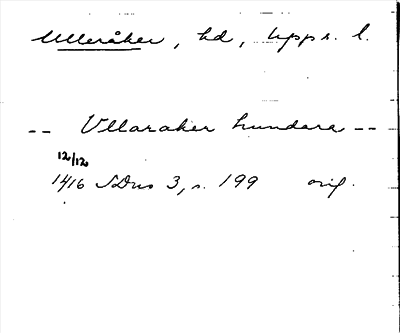 Ulleråker, hd, Upps. l.
-- Vllaraker hundare --
12/12
1416 SDns 3, s. 199 orig.